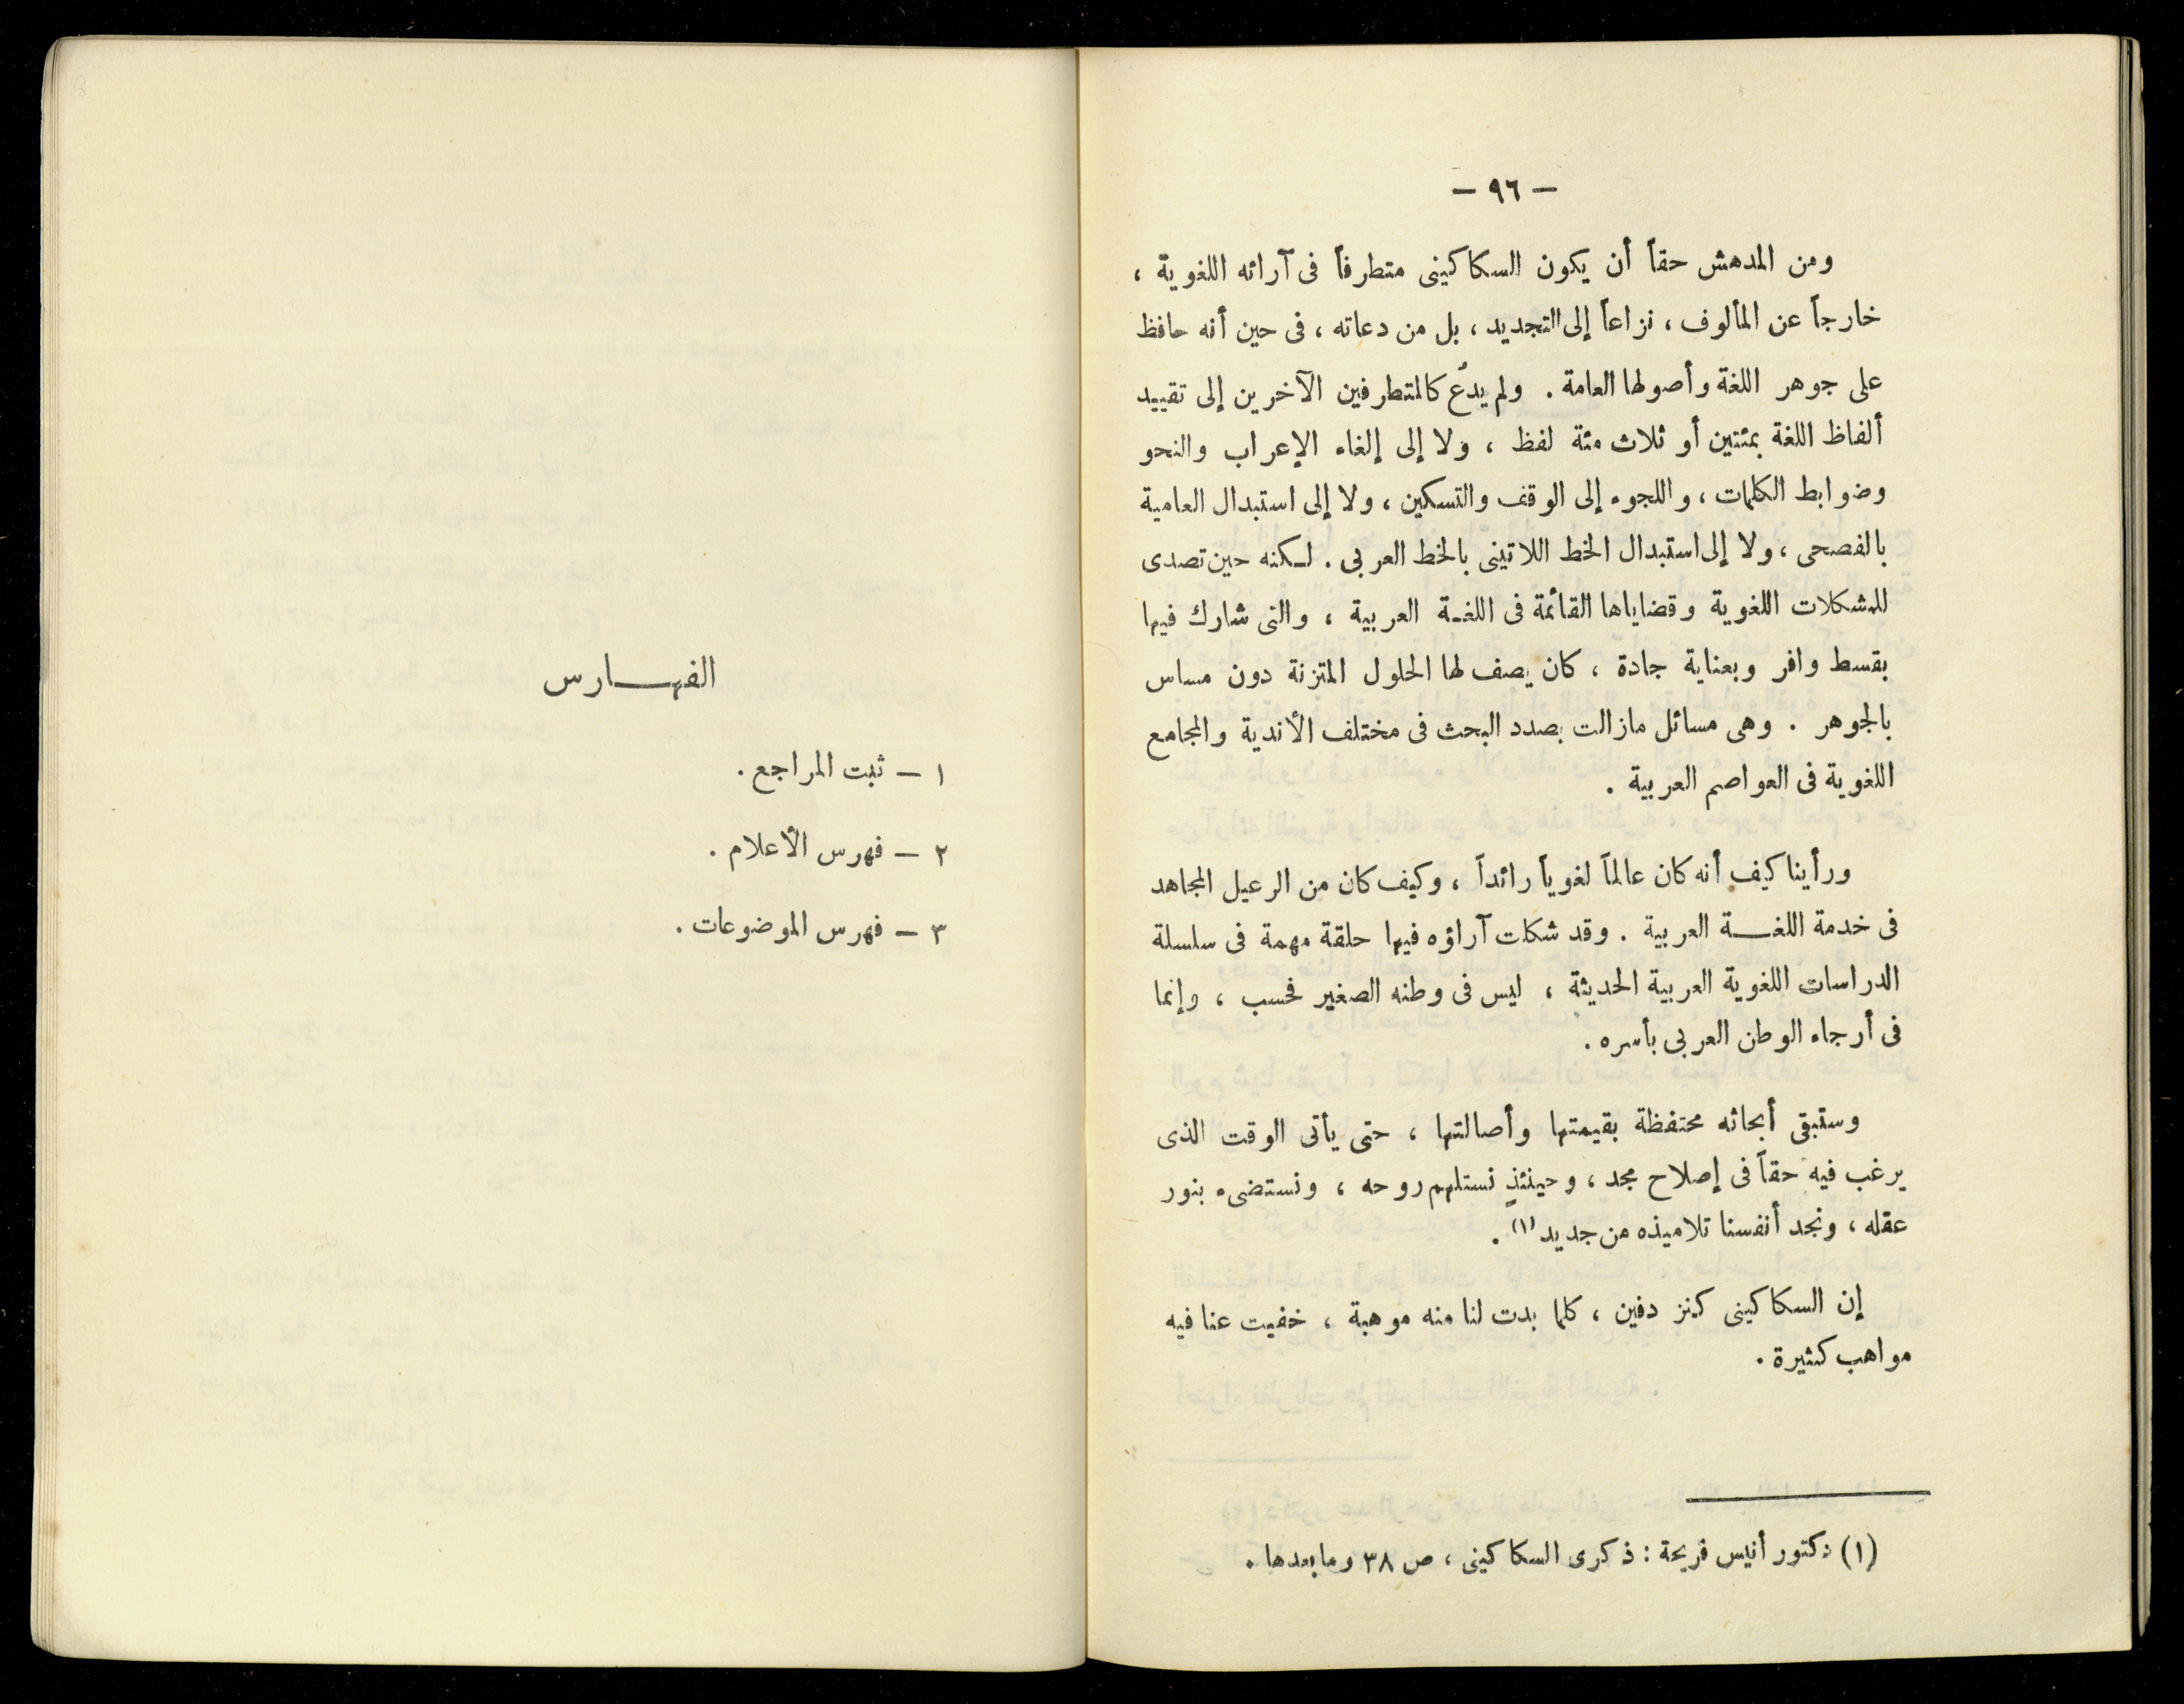 — ٩٦ —
ومن المدهش حقاً أن يكون السكاكينى متطرفاً فى آرائه اللغوية ،
خارجاً عن المألوف ، نزاعاً إلى التجديد ، بل من دعاته ، فى حين أنه حافظ
على جوهر اللغة وأصولها العامة . ولم يدْع كالمتطرفين الآخرين إلى تقييد
ألفاظ اللغة بمئتين أو ثلاث مئة لفظ ، ولا إلى إلغاء الإعراب والنحو
وضوابط الكلمات ، واللجوء إلى الوقف والتسكين ، ولا إلى استبدال العامية
بالفصحى ، ولا إلى استبدال الخط اللاتينى بالخط العربى . لكنه حين تصدى
للمشكلات اللغوية وقضاياها القائمة فى اللغة العربية ، والتى شارك فيها
بقسط وافر وبعناية جادة ، كان يصف لها الحلول المتزنة دون مساس
بالجوهر . وهى مسائل مازالت بصدد البحث فى مختلف الأندية والمجامع
اللغوية فى العواصم العربية .
ورأينا كيف أنه كان عالماً لغوياً رائداً ، وكيف كان من الرعيل المجاهد
فى خدمة اللغـــة العربية . وقد شكلت آراؤه فيها حلقة مهمة فى سلسلة
الدراسات اللغوية العربية الحديثة ، ليس فى وطنه الصغير فحسب ، وإنما
فى أرجاء الوطن العربى بأسره .
وستبقى أبحاثه محتفظة بقيمتها وأصالتها ، حتى يأتى الوقت الذى
يرغب فيه حقاً فى إصلاح مجد ، وحينئذٍ نستلهم روحه ، ونستضىء بنور
عقله ، ونجد أنفسنا تلاميذه من جديد (١) .
إن السكاكينى كنز دفين ، كلما بدت لنا منه موهبة ، خفيت عنا فيه
مواهب كثيرة .
(١) دكتور أنيس فريحة : ذكرى السكاكينى ، ص ٣٨ وما بعدها .
الفهـــارس
١ — ثبت المراجع .
٢ — فهرس الأعلام .
٣ — فهرس الموضوعات .